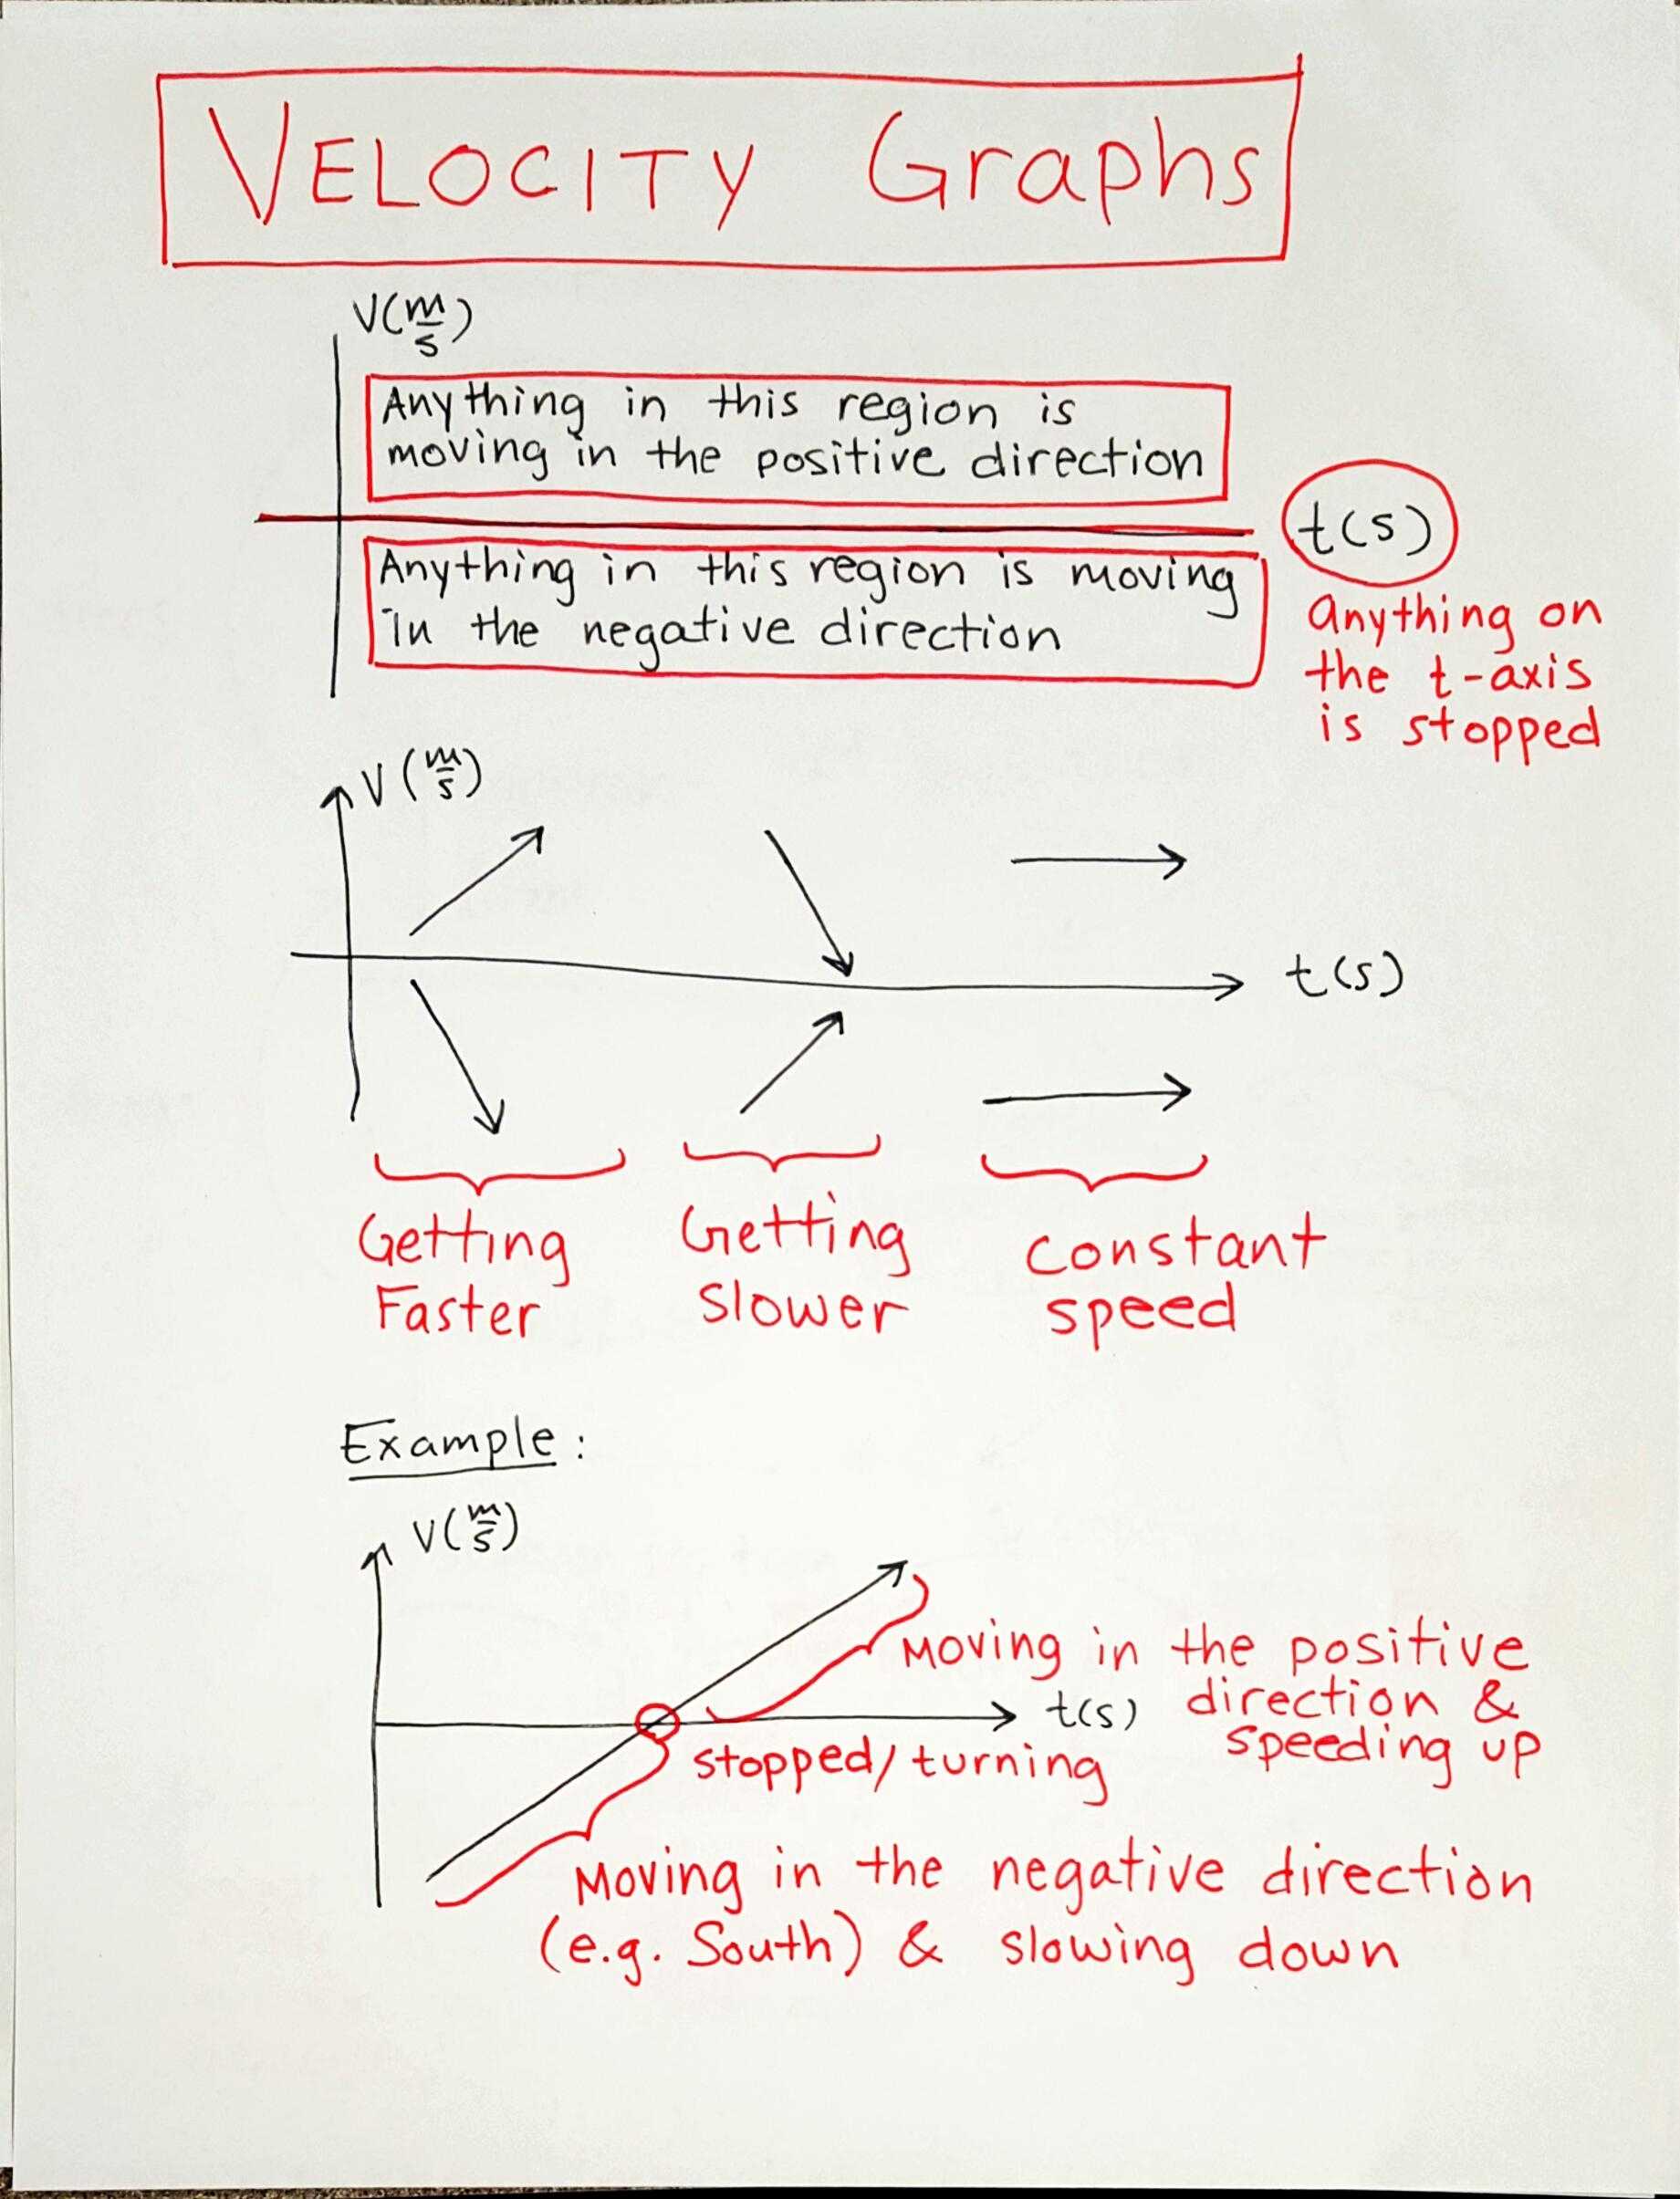 VELOCITY Graphs
V(m/s)
Anything in this region is
moving in the positive direction
t(s)
Anything in this region is moving
in the negative direction
anything on
the t-axis
is stopped
V(m/s)
t(s)
Getting
Faster
Getting
Slower
constant
speed
Example:
V(m/s)
Moving in the positive
direction &
speeding up
t(s)
stopped/turning
Moving in the negative direction
(e.g. South) & slowing down